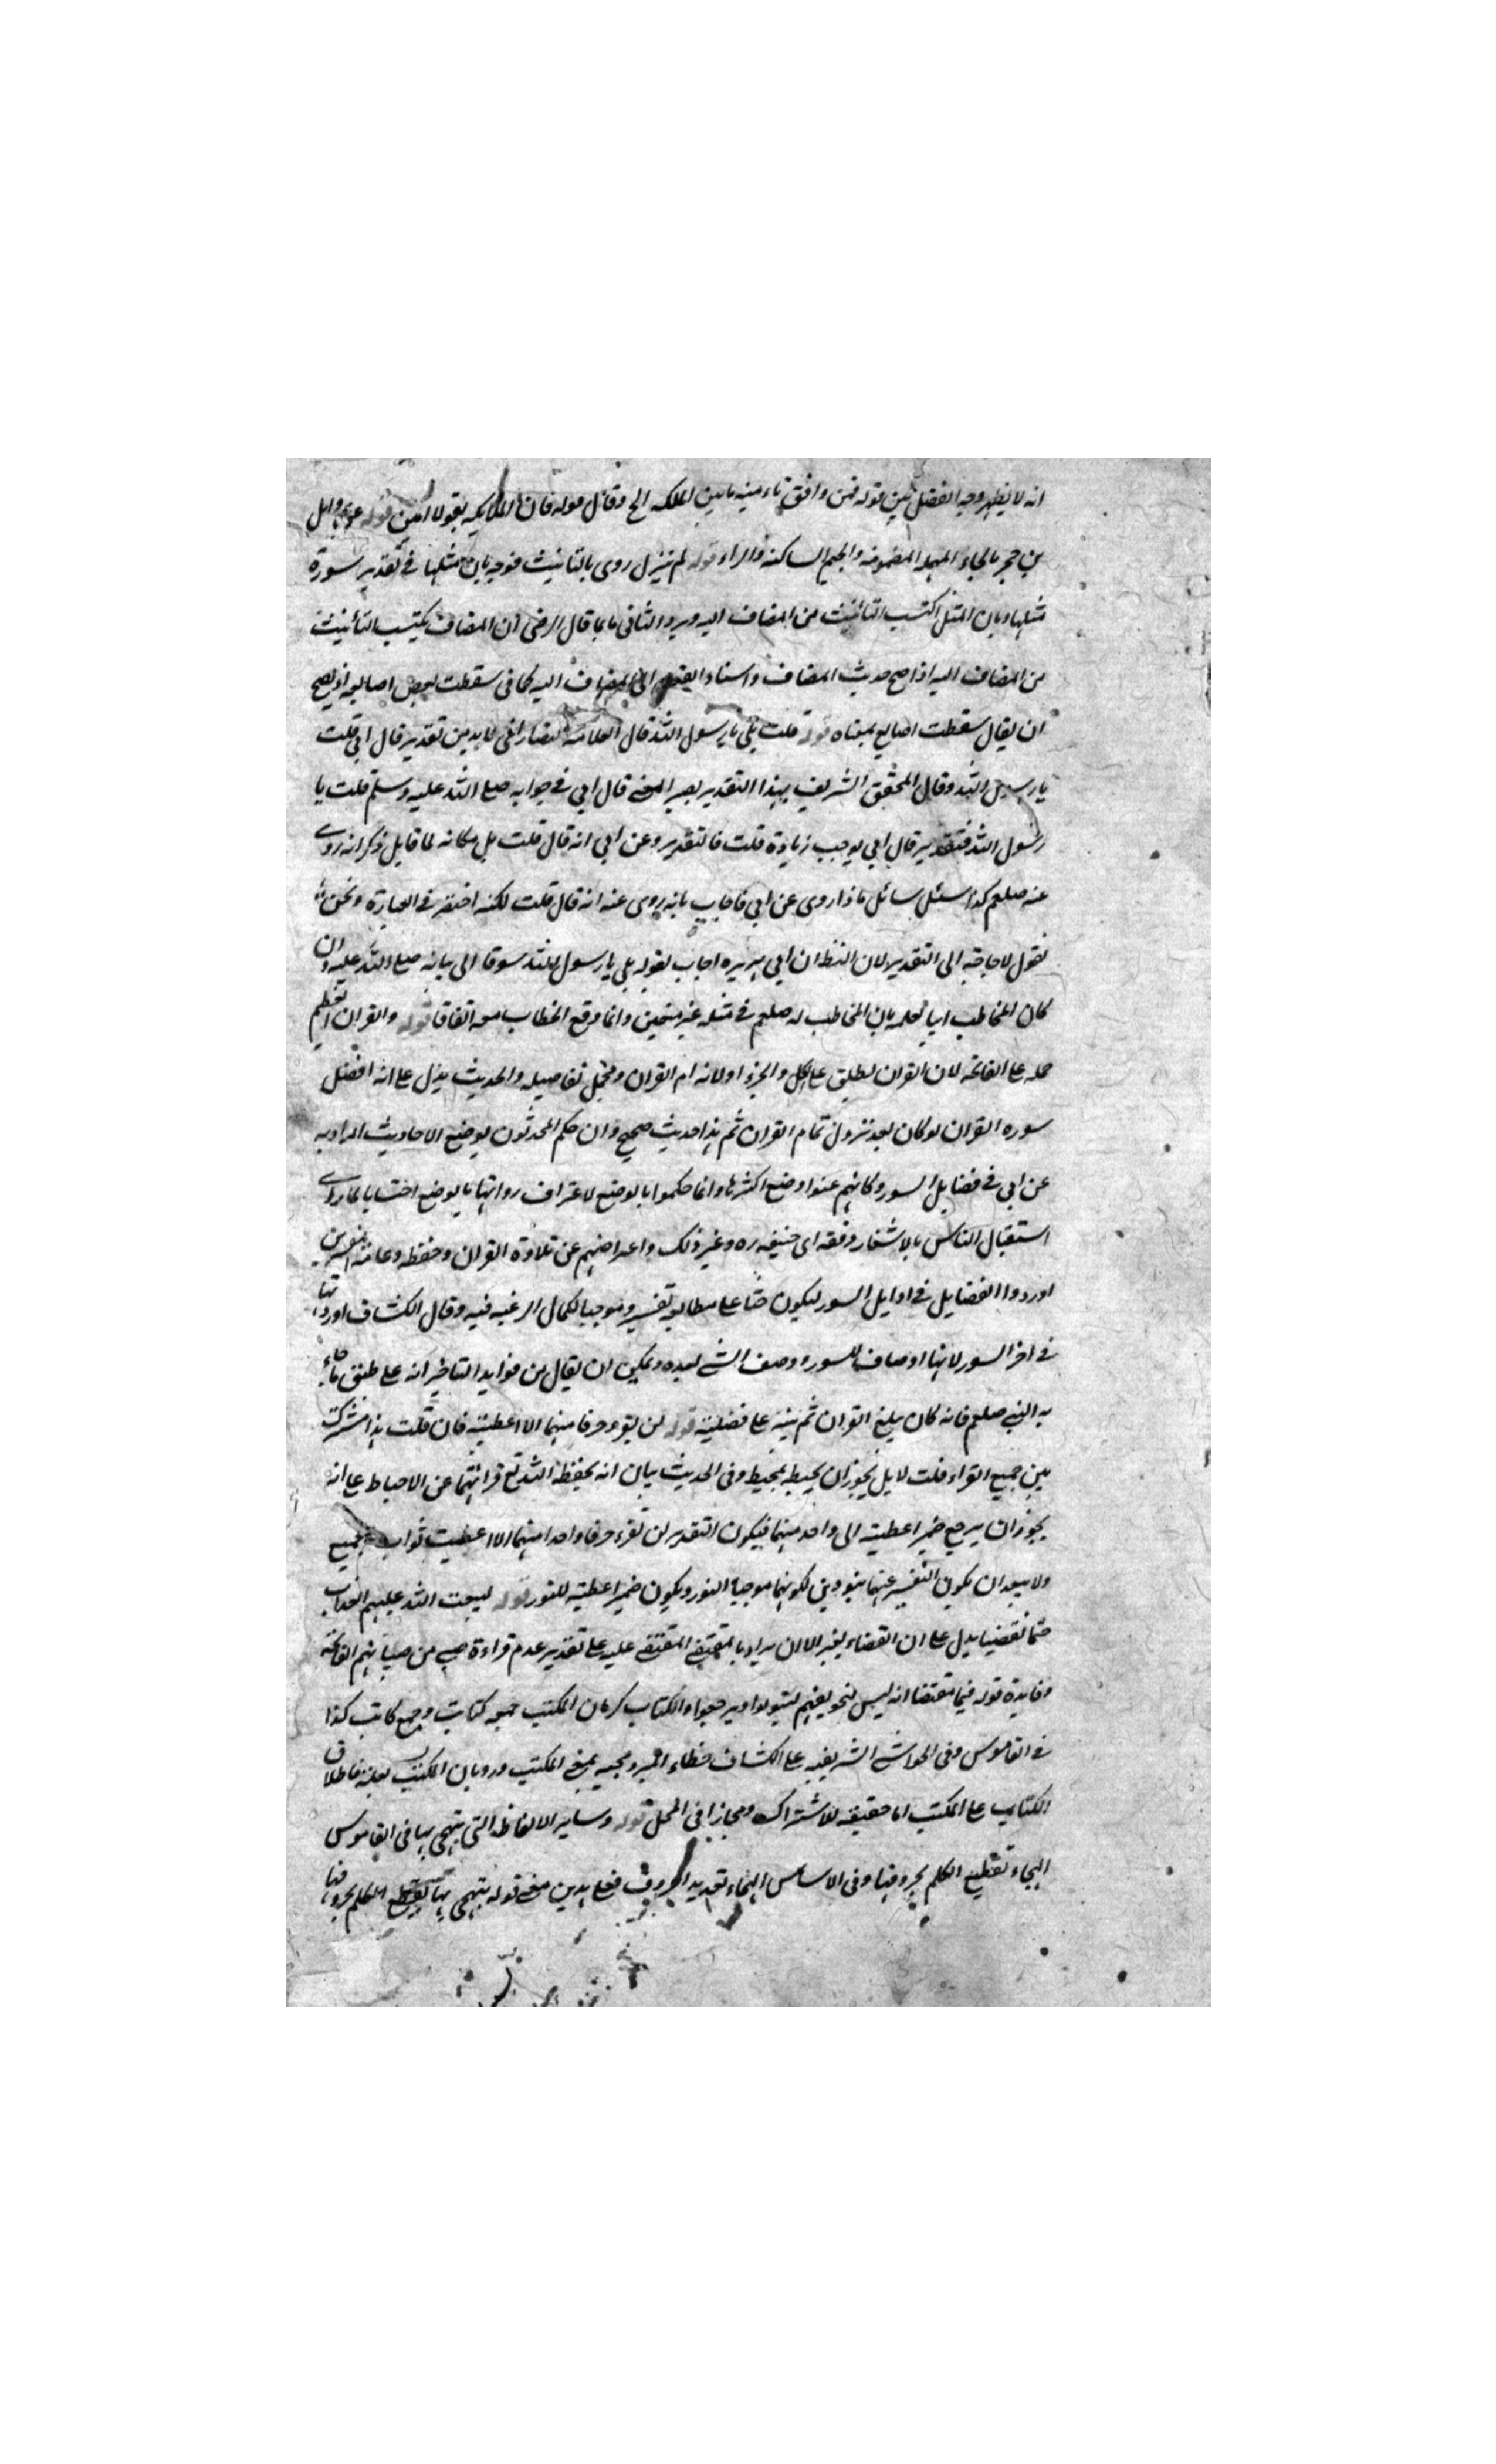 انه لا يظهر وجه الفضل بين قوله فمن وافق تاءمينه تامين الملئكه الخ وقائل قوله فان الملائكه يقولا امين قوله عن وايل
بن حجر بالحاء المهمله المضمومه والجيم الساكنه والراء قوله لم تنزل روى بالتانيث فوجه بان مثلها في تقدير سورة
مثلها وبان المثل اكتسب التانيث من المضاف اليه ويرد الثانى ما بما قال الرضى ان المضاف يكتسب التانيث
من المضاف اليه اذا صح حديث المضاف واسناد الفعل الى المضاف اليه كما فى سقطت بعض اصابعه اذ يصح
ان يقال سقطت اصابع بمعناه قوله قلت بلى يا رسول الله قال العلامه التفتازانى لا بد من تقدير قال ابى قلت
يا رسول الله وقال المحقق الشريف بهذا التقدير يصير المعنى قال ابي في جوابه صلى الله عليه وسلم قلت يا
رسول الله فتقدير قال ابي يوجب زيادة قلت فالتقدير وعن ابي انه قال قلت بل مكانه لما قايل ذكر انه روى
عنه صلعم كذا سئل سائل ماذا روى عن ابي فاجاب بانه روى عنه انه قال قلت لكنه اختصر في العبارة ونحن
نقول لا حاجة الى التقدير لان الظ ان ابي هريره اجاب بقوله بلى يا رسول الله سوقا الى بيانه صلى الله عليه وان
كان المخاطب ابيا لعلمه بان المخاطب له صلعم في مثله غير متعين وانما وقع الخطاب معه اتفاقا قوله والقران العظيم
حمله على الفاتحه لان القران يطلق على الكل والجزء او لانه ام القران ومجمل تفاصيله والحديث يدل على انه افضل
سوره القران لو كان بعد نزول تمام القران ثم هذا حديث صحيح وان حكم المحدثون بوضع الاحاديث المراد به
عن ابي في فضايل السور وكانهم عنوا وضع اكثرها وانما حكموا بالوضع لاعتراف رواتها بالوضع احتسابا لما راى
استقبال الناس بالاشعار وفقه ابى حنيفه ره وغير ذلك واعراضهم عن تلاوة القران وحفظه وعامة المفسرين
اوردوا الفضايل في اوايل السور ليكون حثا على مطالعه تفسيره وموجبا لكمال الرغبه فيه وقال الكشاف اوردتها
في اخر السور لانها اوصاف للسوره ووصف الشى بعده ويمكن ان يقال من فوايد التاخير انه على طبق ما جاء
به النبى صلعم فانه كان يبلغ القران ثم ينبه على فضليته قوله لن يقرء حرفا منهما الا اعطيته فان قلت هذا مشترك
بين جميع القراء قلت لا بل يجوز ان يحيطه محيط وفى الحديث بيان انه يحفظه الله تع قرائتهما عن الاحباط على انه
يجوز ان يرجع ضمير اعطيته الى واحد منهما فيكون التقدير لن تقرء حرفا واحدا منهما الا اعطيت ثواب جميع
ولا يبعد ان يكون التفسير عنهما بنورين لكونهما موجبا النور ويكون ضمير اعطيته للنور قوله ليبعث الله عليهم العذاب
حتما مقضيا يدل على ان القضاء يغير الا ان يراد بالمقضى المقتضى عليه على تقدير عدم قراءة صبي من صبيانهم الفاتحه
وفايدة قوله فيما مقتضا انه ليس لتخويفهم ليتولوا ويرجعوا والكتاب كرمان المكتب جمعه كتاتيب وجمع كاتب كذا
في القاموس وفى الحواشى الشريفيه على الكشاف خطاء المبرد مجيه بمعنى المكتب ورد بان المكتب لعله فاطلاق
الكتاب على المكتب اما حقيقه للاشتراك ومجازا فى المحل قوله وساير الالفاظ التى يتهجى بها فى القاموس
الهجاء تقطيع الكلم بحروفها وفى الاساس الهجاء تعديد الحروف فعلى هذين معنى قوله يتهجى بها تقطع الكلم بحروفها